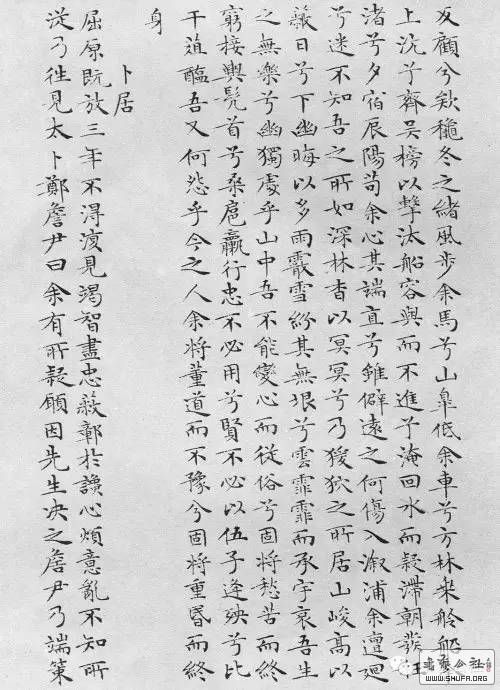 反顧兮欸穐冬之緒風步余馬兮山皐低余車兮方林椉舲船
上沅兮齊吳榜以擊汰船容與而不進兮淹回水而疑滯朝發
渚兮夕宿辰陽苟余心其端直兮雖僻遠之何傷入漵浦余邅廻
兮迷不知吾之所如深林杳以冥冥兮乃猨狖之所居山峻高以
蔽日兮下幽晦以多雨霰雪紛其無垠兮雲霏霏而承宇哀吾生
之無樂兮幽獨處乎山中吾不能變心而從俗兮固將愁苦而終
窮接輿髡首兮桑扈臝行忠不必用兮賢不必以伍子逢殃兮比
干菹醢吾又何怨乎今之人余將董道而不豫兮固將重昏而終
身
卜居
屈原既放三年不得復見竭智盡忠蔽鄣於讒心煩意亂不知所
從乃往見太卜鄭詹尹曰余有所疑願因先生決之詹尹乃端策
WWW.SHUFA.ORG